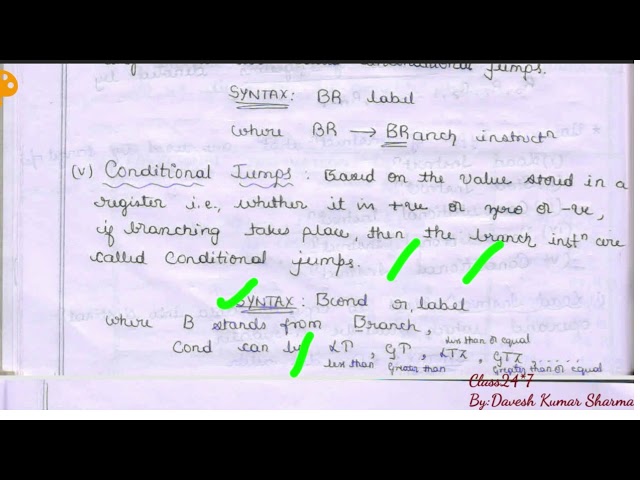 unconditional jumps.
SYNTAX: BR label
where BR → BRanch instructⁿ
(v) Conditional Jumps : Based on the value stored in a
register i.e., whether it is +ve or zero or -ve,
if branching takes place, then the branch instⁿ are
called Conditional jumps.
SYNTAX: Bcond r, label
where B stands from Branch,
Cond can be LT, GT, LTX, GTX, ......
less than greater than less than or equal greater than or equal
Class24*7
By:Davesh Kumar Sharma